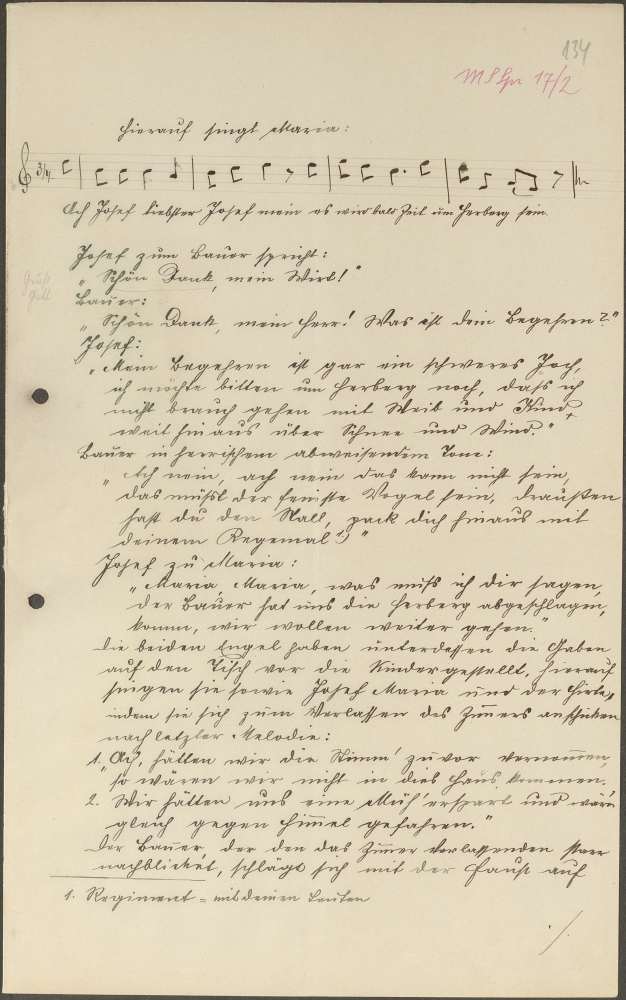 134
MS Spr 17/2
Hierauf singt Maria:
3/4
Ach Josef liebster Josef mein es wird bald Zeit um Herberg sein.
Josef zum Bauer spricht:
Grüß Gott
"Schön Dank, mein Wirt!"
Bauer:
"Schön Dank, mein Herr! Was ist dein Begehren?"
Josef:
"Mein Begehren ist gar ein schweres Joch,
ich möchte bitten um Herberg noch, dass ich
nicht brauch gehen mit Weib und Kind,
weit hinaus über Schnee und Wind."
Bauer in herrischem abweisendem Tone:
"Ach nein, ach nein das kann nicht sein,
das müsst der feinste Vogel sein, draußen
hast du den Stall, pack dich hinaus mit
deinem Regemal 1)"
Josef zu Maria:
"Maria, Maria, was muss ich dir sagen,
der Bauer hat uns die Herberg abgeschlagen,
komm, wir wollen weiter gehen."
Die beiden Engel haben unterdessen die Gaben
auf den Tisch vor die Kinder gestellt. Hierauf
singen sie sowie Josef Maria und der Hirte,
indem sie sich zum Verlassen des Zimmers anschicken
nach letzter Melodie:
1. "Ach, hätten wir die Stimm' zuvor vernommen,
so wären wir nicht in dies Haus kommen.
2. Wir hätten uns eine Müh' erspart und wärn
gleich gegen Himmel gefahren."
Der Bauer, der den das Zimmer Verlassenden starr
nachblicket, schlägt sich mit der Faust auf
1. Regiment = mit deinen Leuten
./.